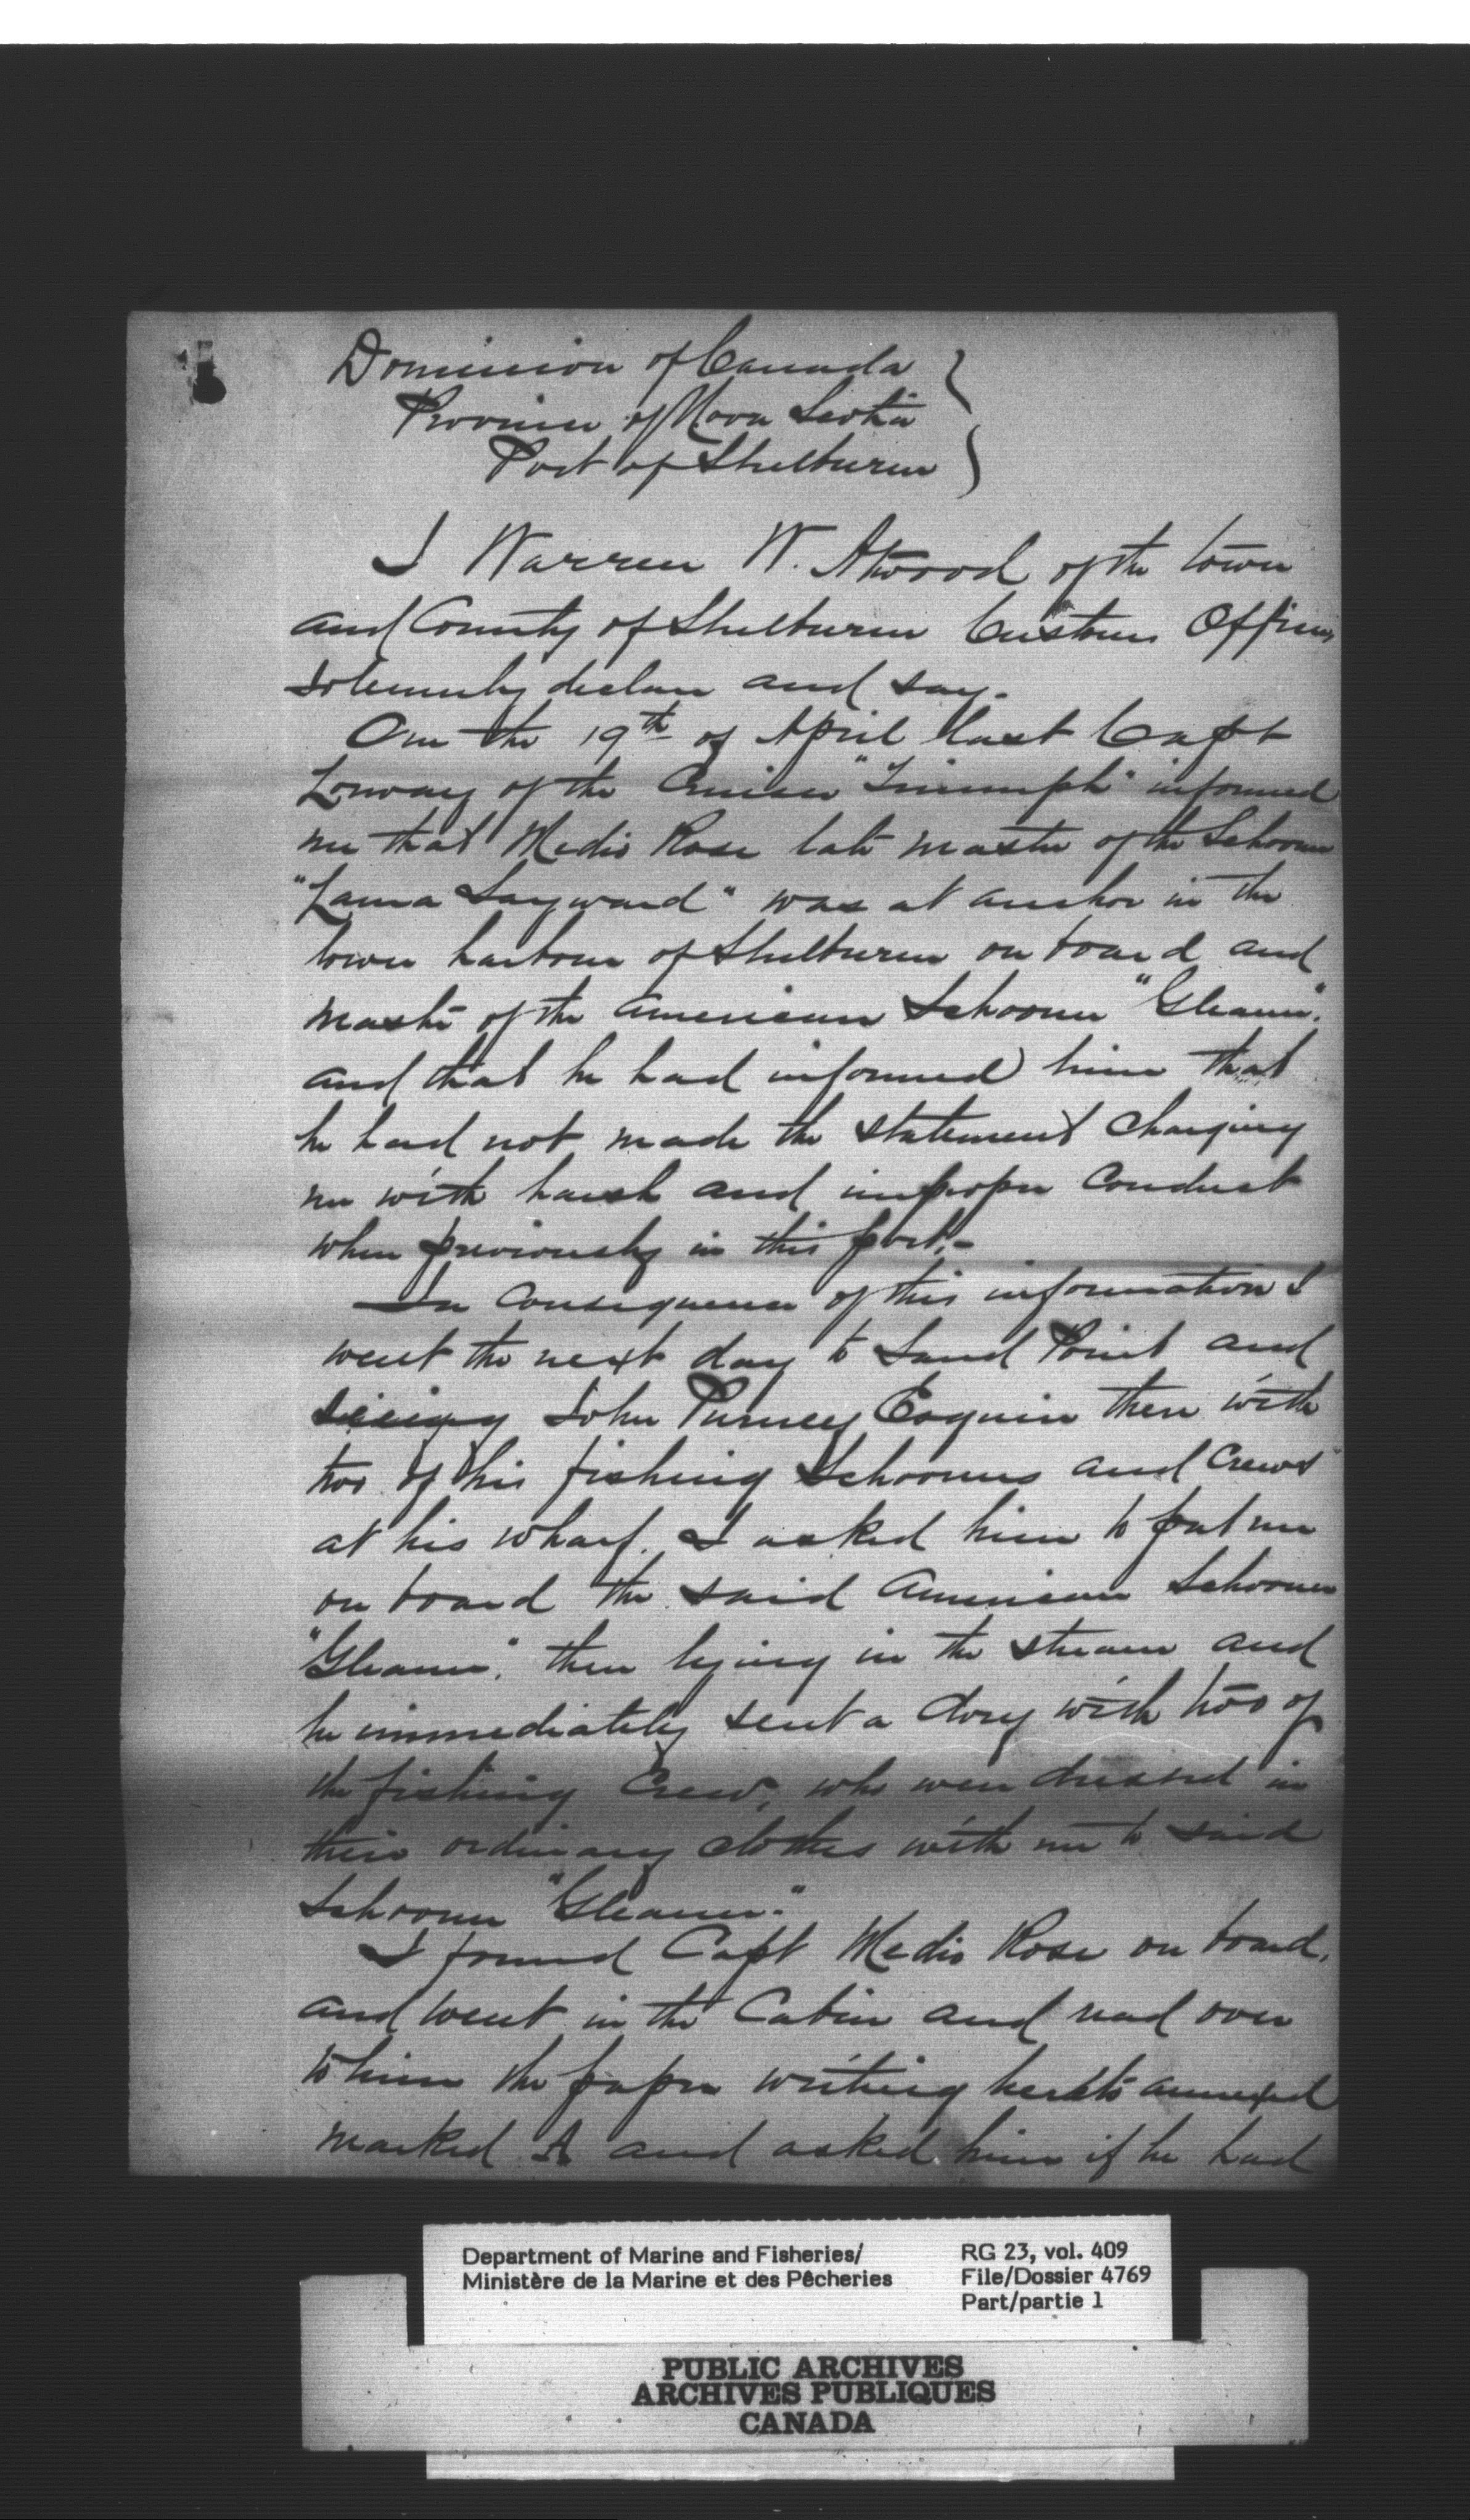 Dominion of Canada
Province of Nova Scotia
Port of Shelburne
I Warren W. Atwood of the town
and County of Shelburne Customs Officer
solemnly declare and say.
On the 19th of April last Capt
Lorway of the Cruiser "Triumph" informed
me that Medio Rose late master of the Schooner
"Laura Sayward" was at anchor in the
lower harbour of Shelburne on board and
master of the American Schooner "Gleaner".
and that he had informed him that
he had not made the statement charging
me with harsh and improper conduct
when previously in this port.-
In consequence of this information I
went the next day to Sand Point and
seeing John Purney Esquire there with
two of his fishing Schooners and Crews
at his wharf. I asked him to put me
on board the said American Schooner
"Gleaner". then lying in the stream and
he immediately sent a dory with two of
the fishing Crew, who were dressed in
their ordinary clothes with me to said
Schooner "Gleaner."
I found Capt Medio Rose on board,
and went in the Cabin and read over
to him the paper writing hereto annexed
marked A and asked him if he had
Department of Marine and Fisheries/
Ministère de la Marine et des Pêcheries
RG 23, vol. 409
File/Dossier 4769
Part/partie 1
PUBLIC ARCHIVES
ARCHIVES PUBLIQUES
CANADA